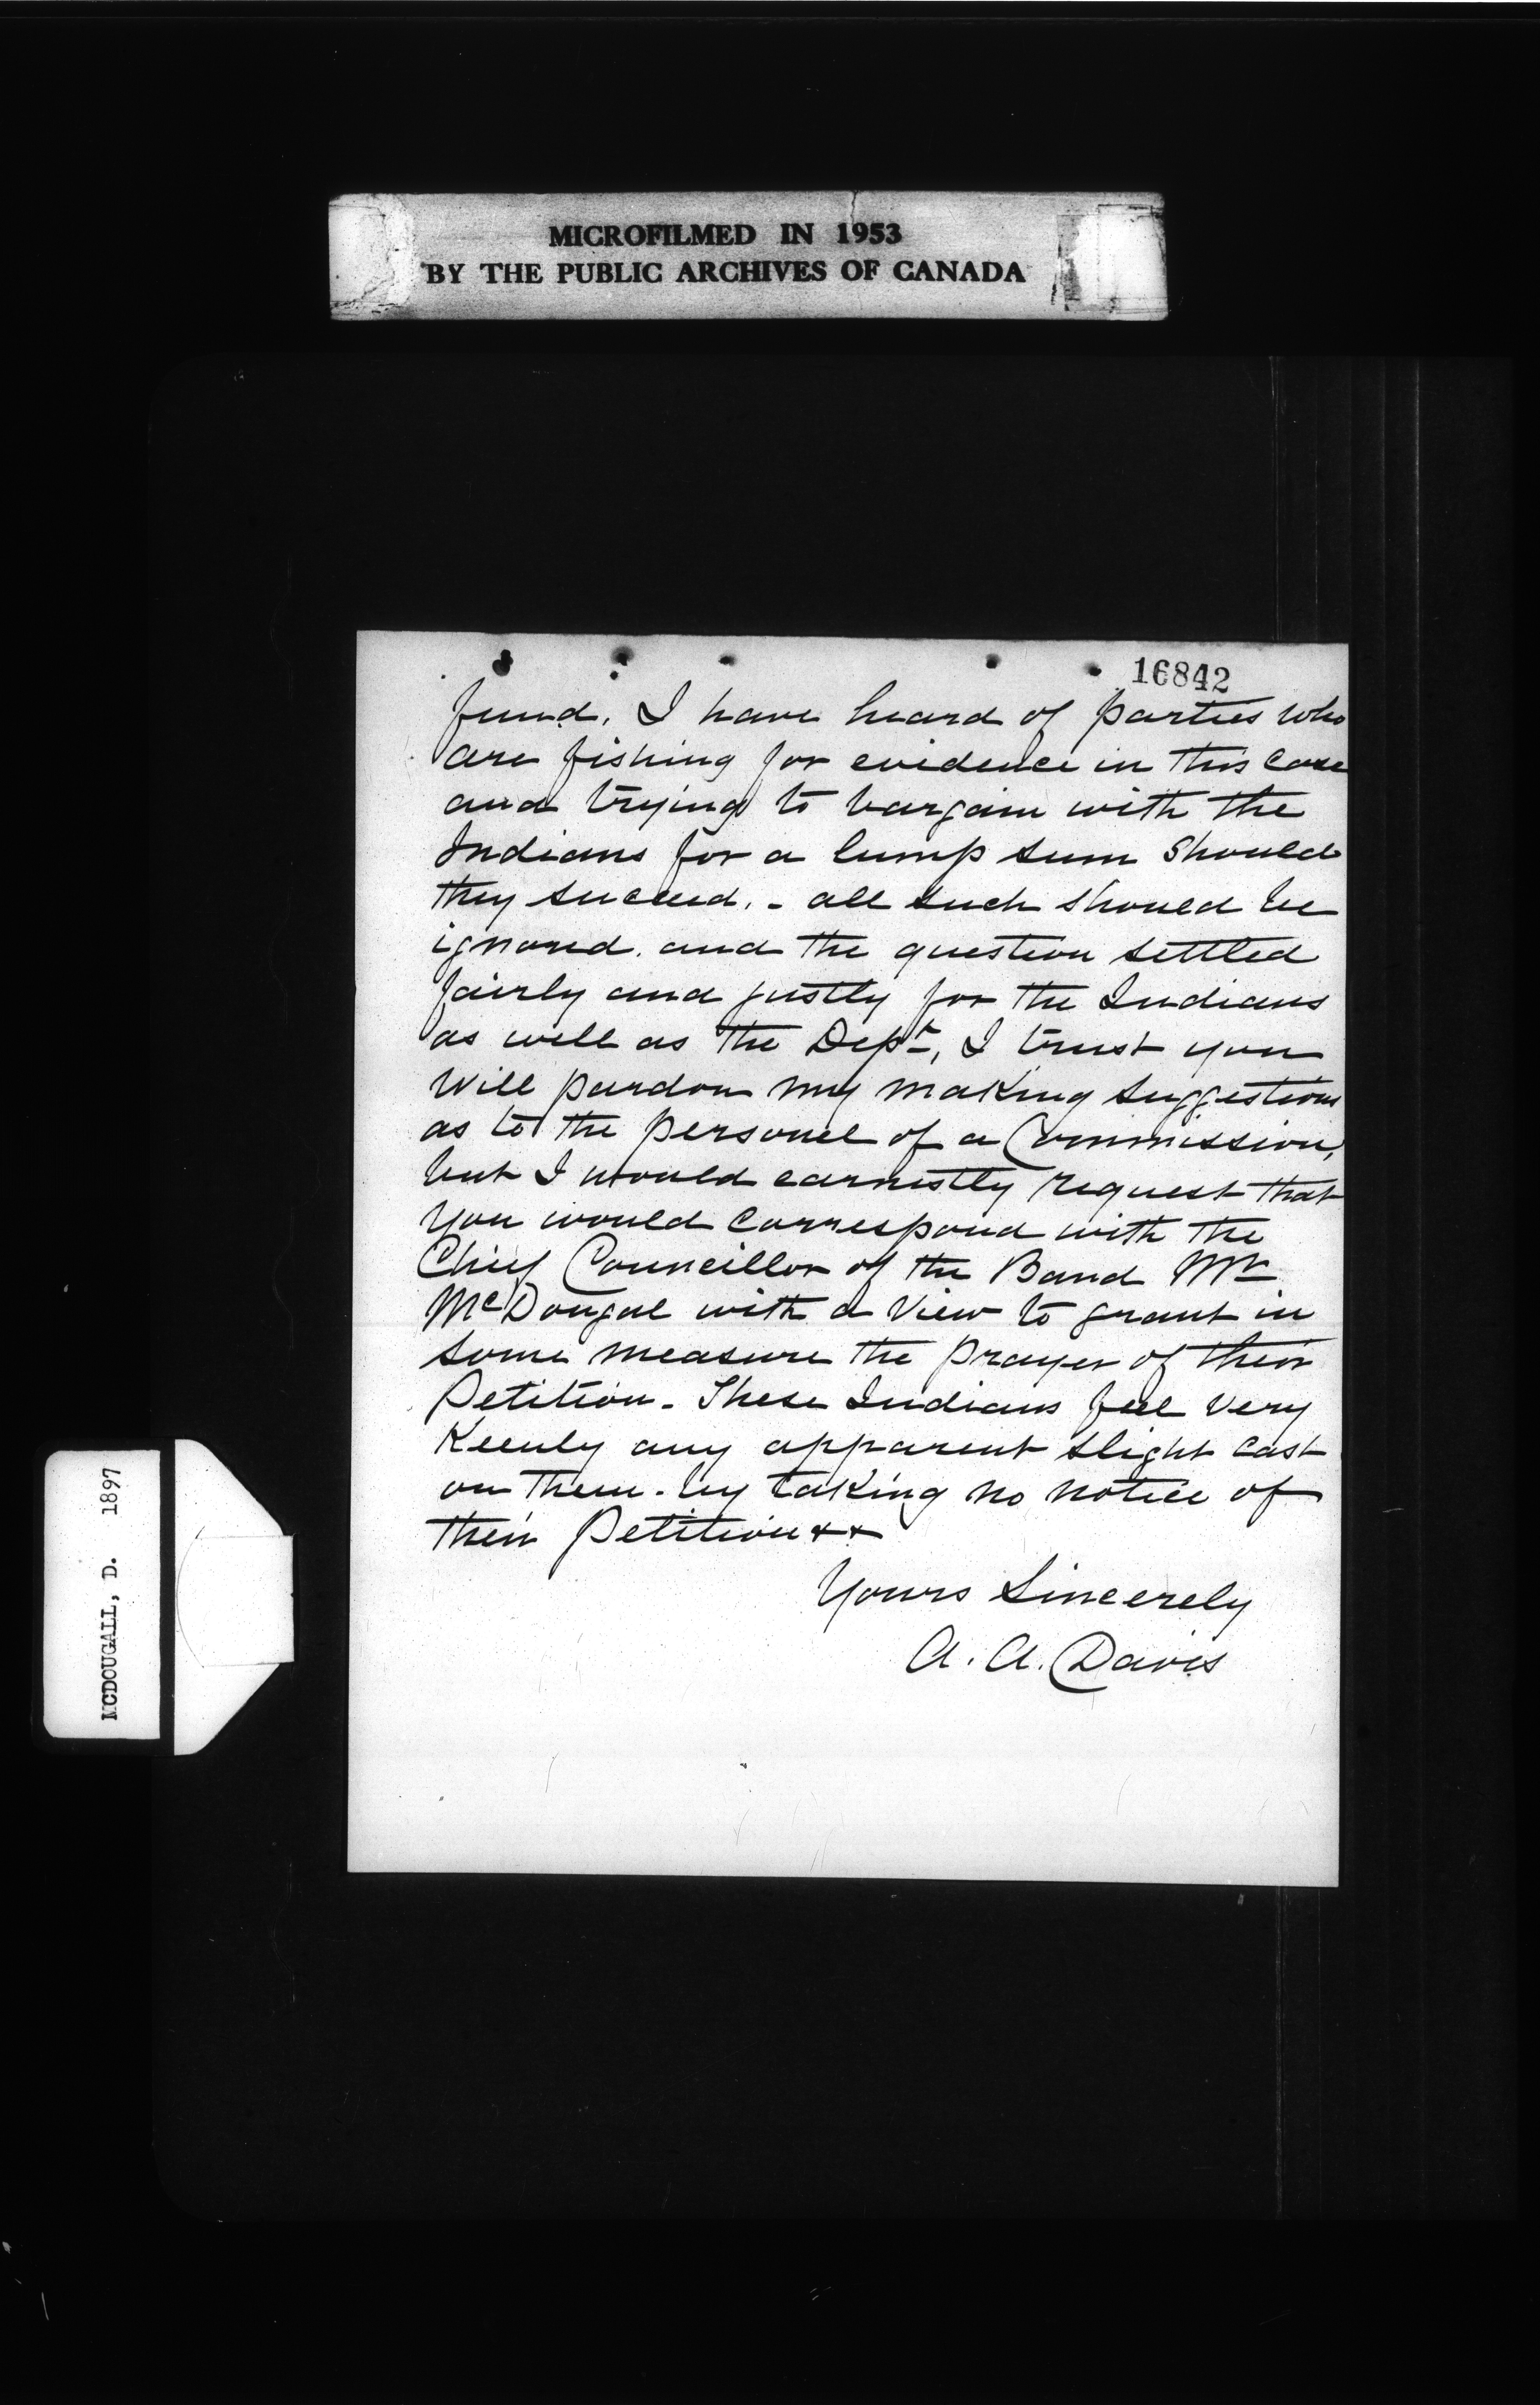 MICROFILMED IN 1953
BY THE PUBLIC ARCHIVES OF CANADA
16842
fund. I have heard of parties who
are fishing for evidence in this case
and trying to bargain with the
Indians for a lump sum should
they succeed. - all such should be
ignored. and the question settled
fairly and justly for the Indians
as well as the Dept, I trust you
will pardon my making suggestions
as to the personel of a Commission,
but I would earnestly request that
you would correspond with the
Chief Councillor of the Band Mr
McDougal with a view to grant in
some measure the prayer of their
Petition - These Indians feel very
Keenly any apparent slight cast
on them - by taking no notice of
their Petition xx
Yours Sincerely
A. A. Davis
MCDOUGALL, D. 1897